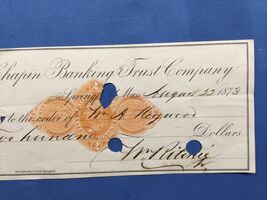 Chapin Banking Trust Company
Spring Mass August 22 1873
to the order of Wm A Haywood
Two hundred Dollars
Wm Ritchie